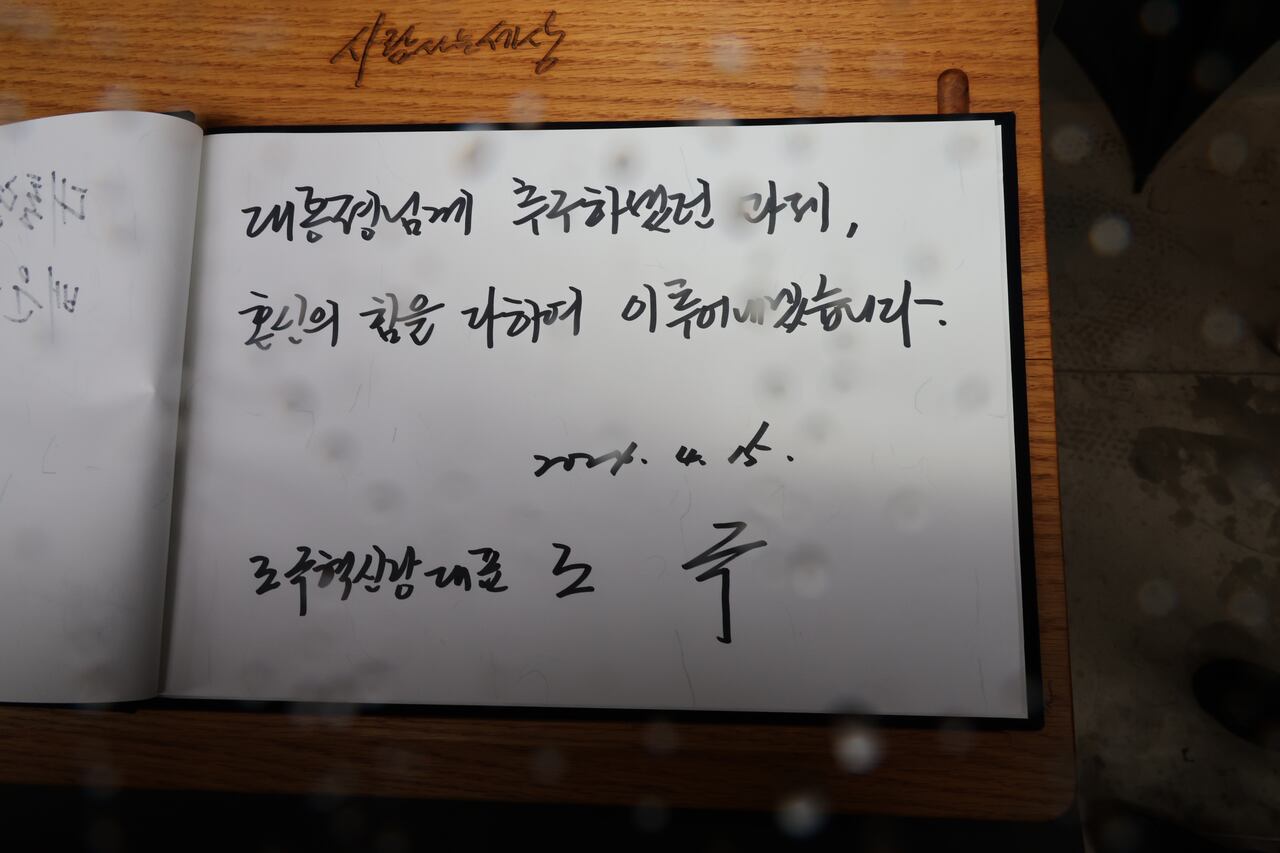 사람사는세상
대통령님께 추구하셨던 과제,
혼신의 힘을 다하여 이루어내겠습니다.
2024. 4. 15.
조국혁신당 대표 조 국